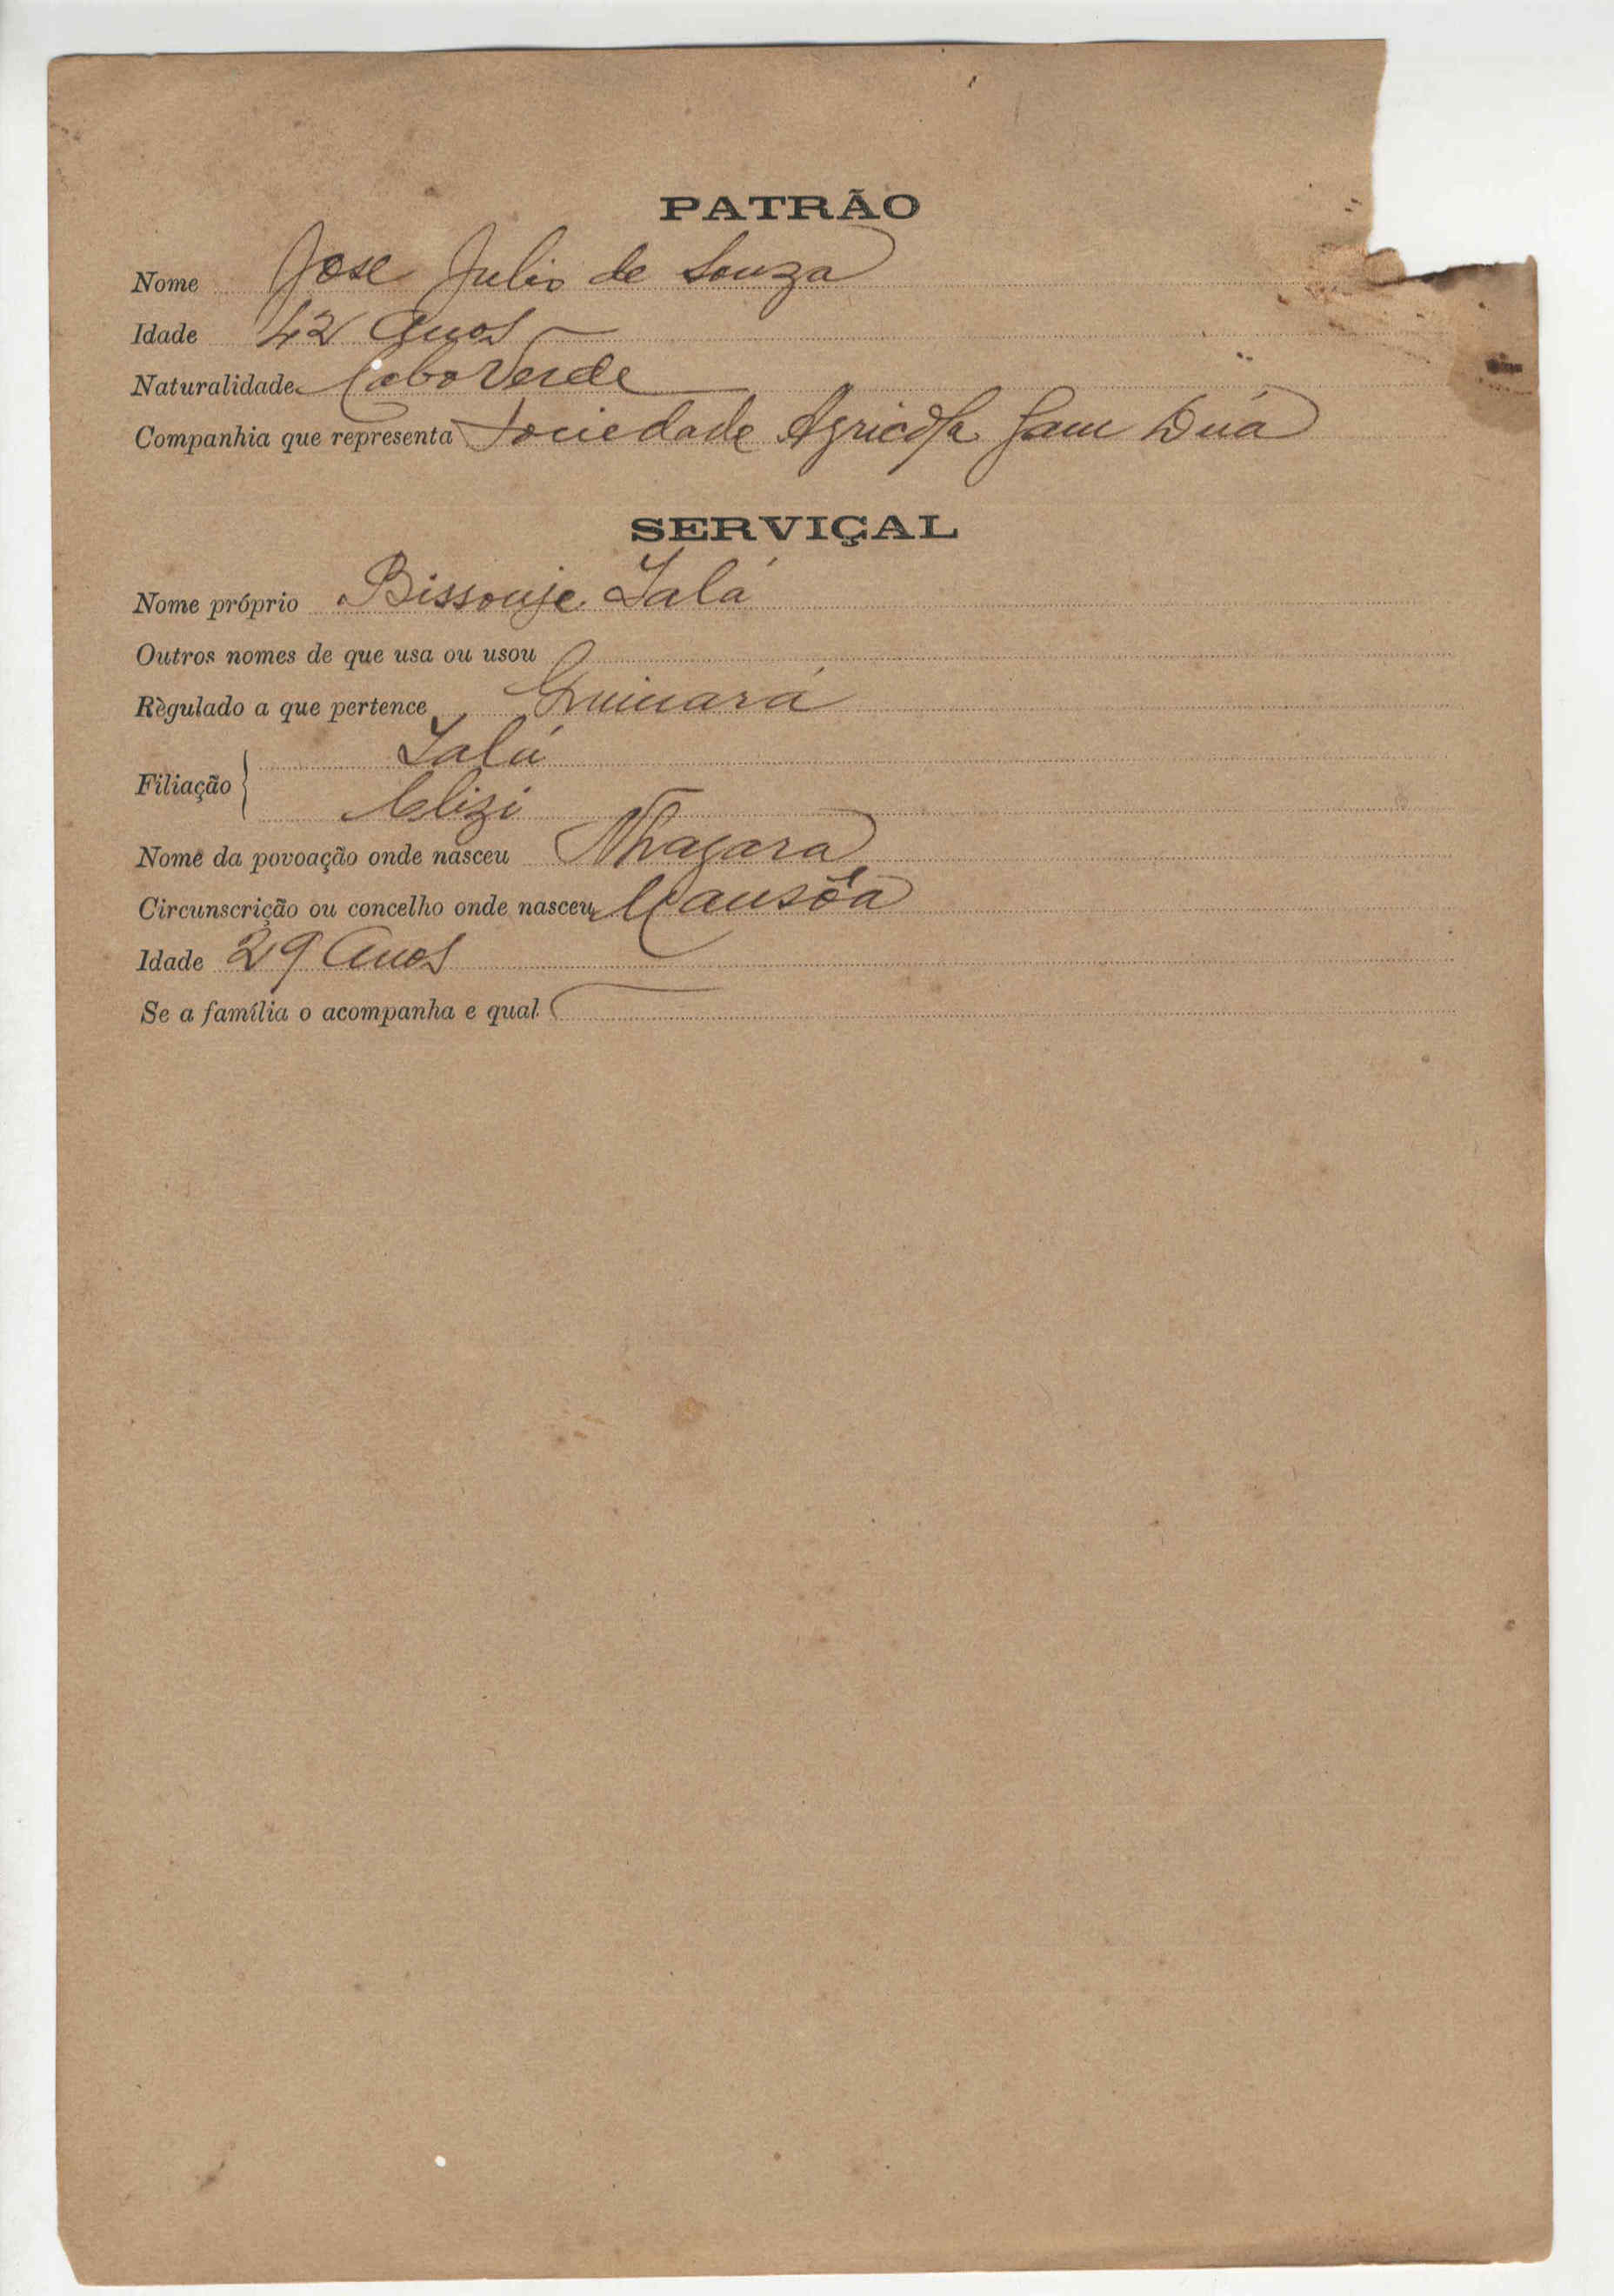 PATRÃO
Nome Jose Julio de Souza
Idade 42 Anos
Naturalidade Cabo Verde
Companhia que representa Sociedade Agricola Gam Duá
SERVIÇAL
Nome próprio Bissonje Ialá
Outros nomes de que usa ou usou
Règulado a que pertence Quinará
Filiação { Ialá
Clizi
Nome da povoação onde nasceu Nhagara
Circunscrição ou concelho onde nasceu Mansôa
Idade 29 Anos
Se a família o acompanha e qual